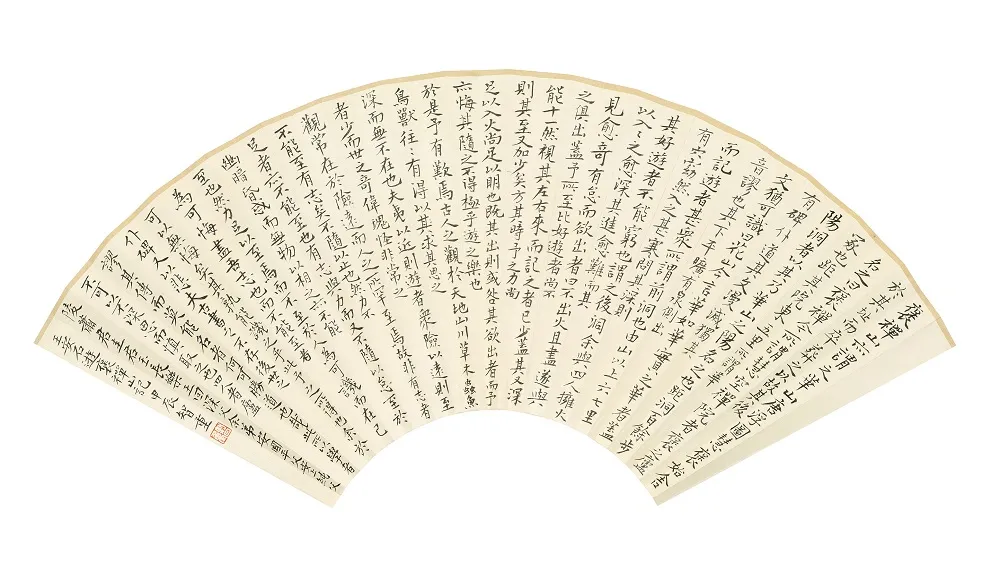 褒禪山亦謂之華山唐浮圖慧褒始舍
於其址而卒葬之以故後
名之曰褒禪今所謂慧空禪院者褒之廬
冢也距其院東五里所謂華
陽洞者以其乃華山之陽名之也距洞百餘步
有碑仆道其文漫滅獨其
文猶可識曰花山今言華如華實之華者蓋
音謬也其下平曠有泉側出
而記遊者甚衆所謂前洞也由山以上六七里
有穴窈然入之甚寒問其深則
其好遊者不能窮也謂之後洞余與四人擁火
以入入之愈深其進愈難而其
見愈奇有怠而欲出者曰不出火且盡遂與
之俱出蓋予所至比好遊者尚不
能十一然視其左右來而記之者已少蓋其又深
則其至又加少矣方其時予之力尚
足以入火尚足以明也既其出則或咎其欲出者而予
亦悔其隨之不得極乎遊之樂也
於是予有歎焉古人之觀於天地山川草木蟲魚
鳥獸往往有得以其求思之
深而無不在也夫夷以近則遊者衆險以遠則至
者少而世之奇偉瑰怪非常之
觀常在於險遠而人之所罕至焉故非有志者
不能至有志矣不隨以止也然力不
足者亦不能至也有志與力而又不隨以怠至於
幽暗昏惑而無物以相之亦不能
至也然力足以至焉而不至於人為可譏而在己
為可悔盡吾志也而不能至者
可以無悔矣其孰能譏之乎此予之所得也余於
仆碑又以悲夫古書之不存後世之
謬其傳而莫能名者何可勝道也哉此所以學者
不可以不深思而慎取之也四人者廬
陵蕭君圭君玉長樂王回深父余弟安國平父安上純父
安石遊褒禪山記 甲辰 智重